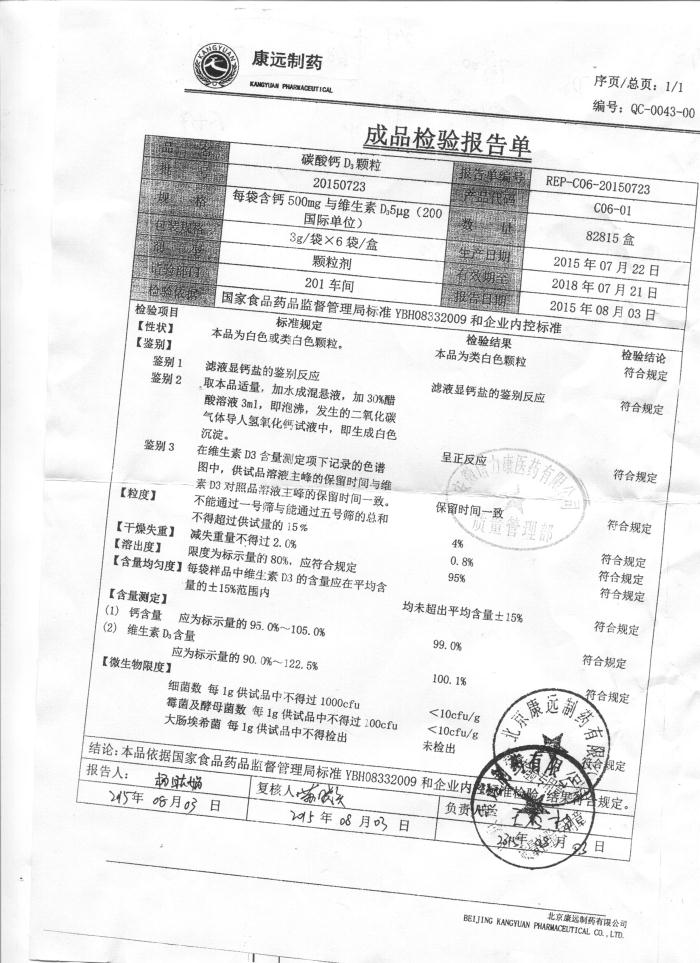 KANGYUAN
康远制药
KANGYUAN PHARMACEUTICAL
序页/总页：1/1
编号：QC-0043-00
成品检验报告单
品 名 碳酸钙 D₃颗粒 报告单编号 REP-C06-20150723
批 号 20150723 产品代码 C06-01
规 格 每袋含钙 500mg 与维生素 D₃5μg（200
国际单位） 数 量 82815 盒
包装规格 3g/袋×6 袋/盒 生产日期 2015 年 07 月 22 日
剂 型 颗粒剂 有效期至 2018 年 07 月 21 日
201 车间 报告日期 2015 年 08 月 03 日
检验依据 国家食品药品监督管理局标准 YBH08332009 和企业内控标准
检验项目 标准规定 检验结果 检验结论
【性状】 本品为白色或类白色颗粒。 本品为类白色颗粒 符合规定
【鉴别】
鉴别 1 滤液显钙盐的鉴别反应 滤液显钙盐的鉴别反应 符合规定
鉴别 2 取本品适量，加水成混悬液，加 30%醋
酸溶液 3ml，即泡沸，发生的二氧化碳
气体导人氢氧化钙试液中，即生成白色
沉淀。 呈正反应 符合规定
鉴别 3 在维生素 D3 含量测定项下记录的色谱
图中，供试品溶液主峰的保留时间与维
素 D3 对照品溶液主峰的保留时间一致。 保留时间一致 符合规定
【粒度】 不能通过一号筛与能通过五号筛的总和
不得超过供试量的 15% 4% 符合规定
【干燥失重】 减失重量不得过 2.0% 0.8% 符合规定
【溶出度】 限度为标示量的 80%，应符合规定 95% 符合规定
【含量均匀度】 每袋样品中维生素 D3 的含量应在平均含
量的±15%范围内 均未超出平均含量±15% 符合规定
【含量测定】
(1) 钙含量 应为标示量的 95.0%～105.0% 99.0% 符合规定
(2) 维生素 D₃含量
应为标示量的 90.0%～122.5% 100.1% 符合规定
【微生物限度】
细菌数 每 1g 供试品中不得过 1000cfu <10cfu/g
霉菌及酵母菌数 每 1g 供试品中不得过 100cfu <10cfu/g
大肠埃希菌 每 1g 供试品中不得检出 未检出 符合规定
质量管理部
北京康远制药有限公司
结论：本品依据国家食品药品监督管理局标准 YBH08332009 和企业内控标准检验，结果符合规定。
报告人： 复核人： 负责人：
2015年 08 月 03 日 2015 年 08 月 03 日 2015年 08 月 03 日
北京康远制药有限公司
BEIJING KANGYUAN PHARMACEUTICAL CO., LTD.